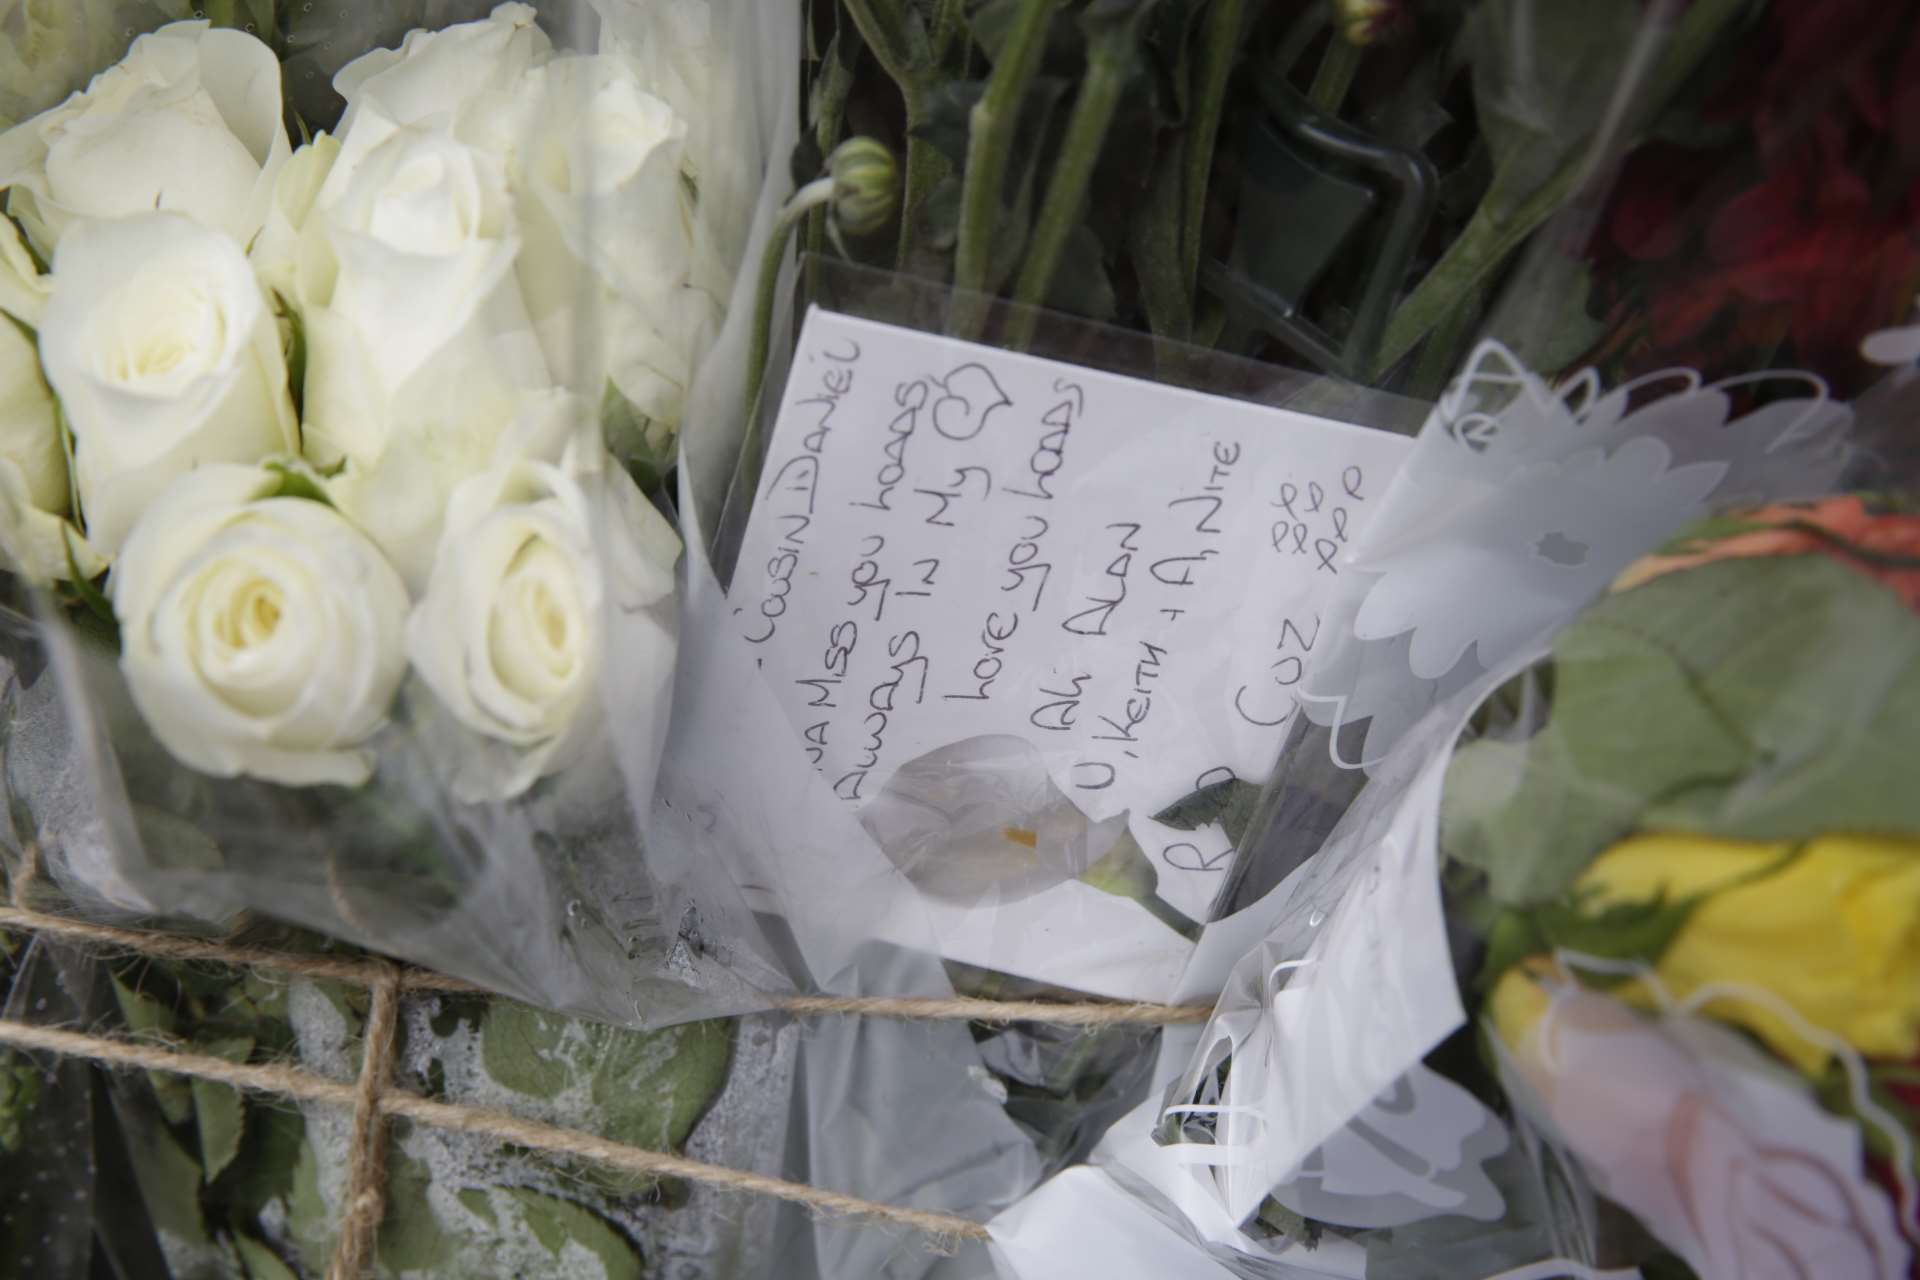 Cousin DANiEL
NA Miss you hoAds
Always IN My
hove you hoAds
Ali ALAN
U, KEITH + A, NITE
R P
CUZ